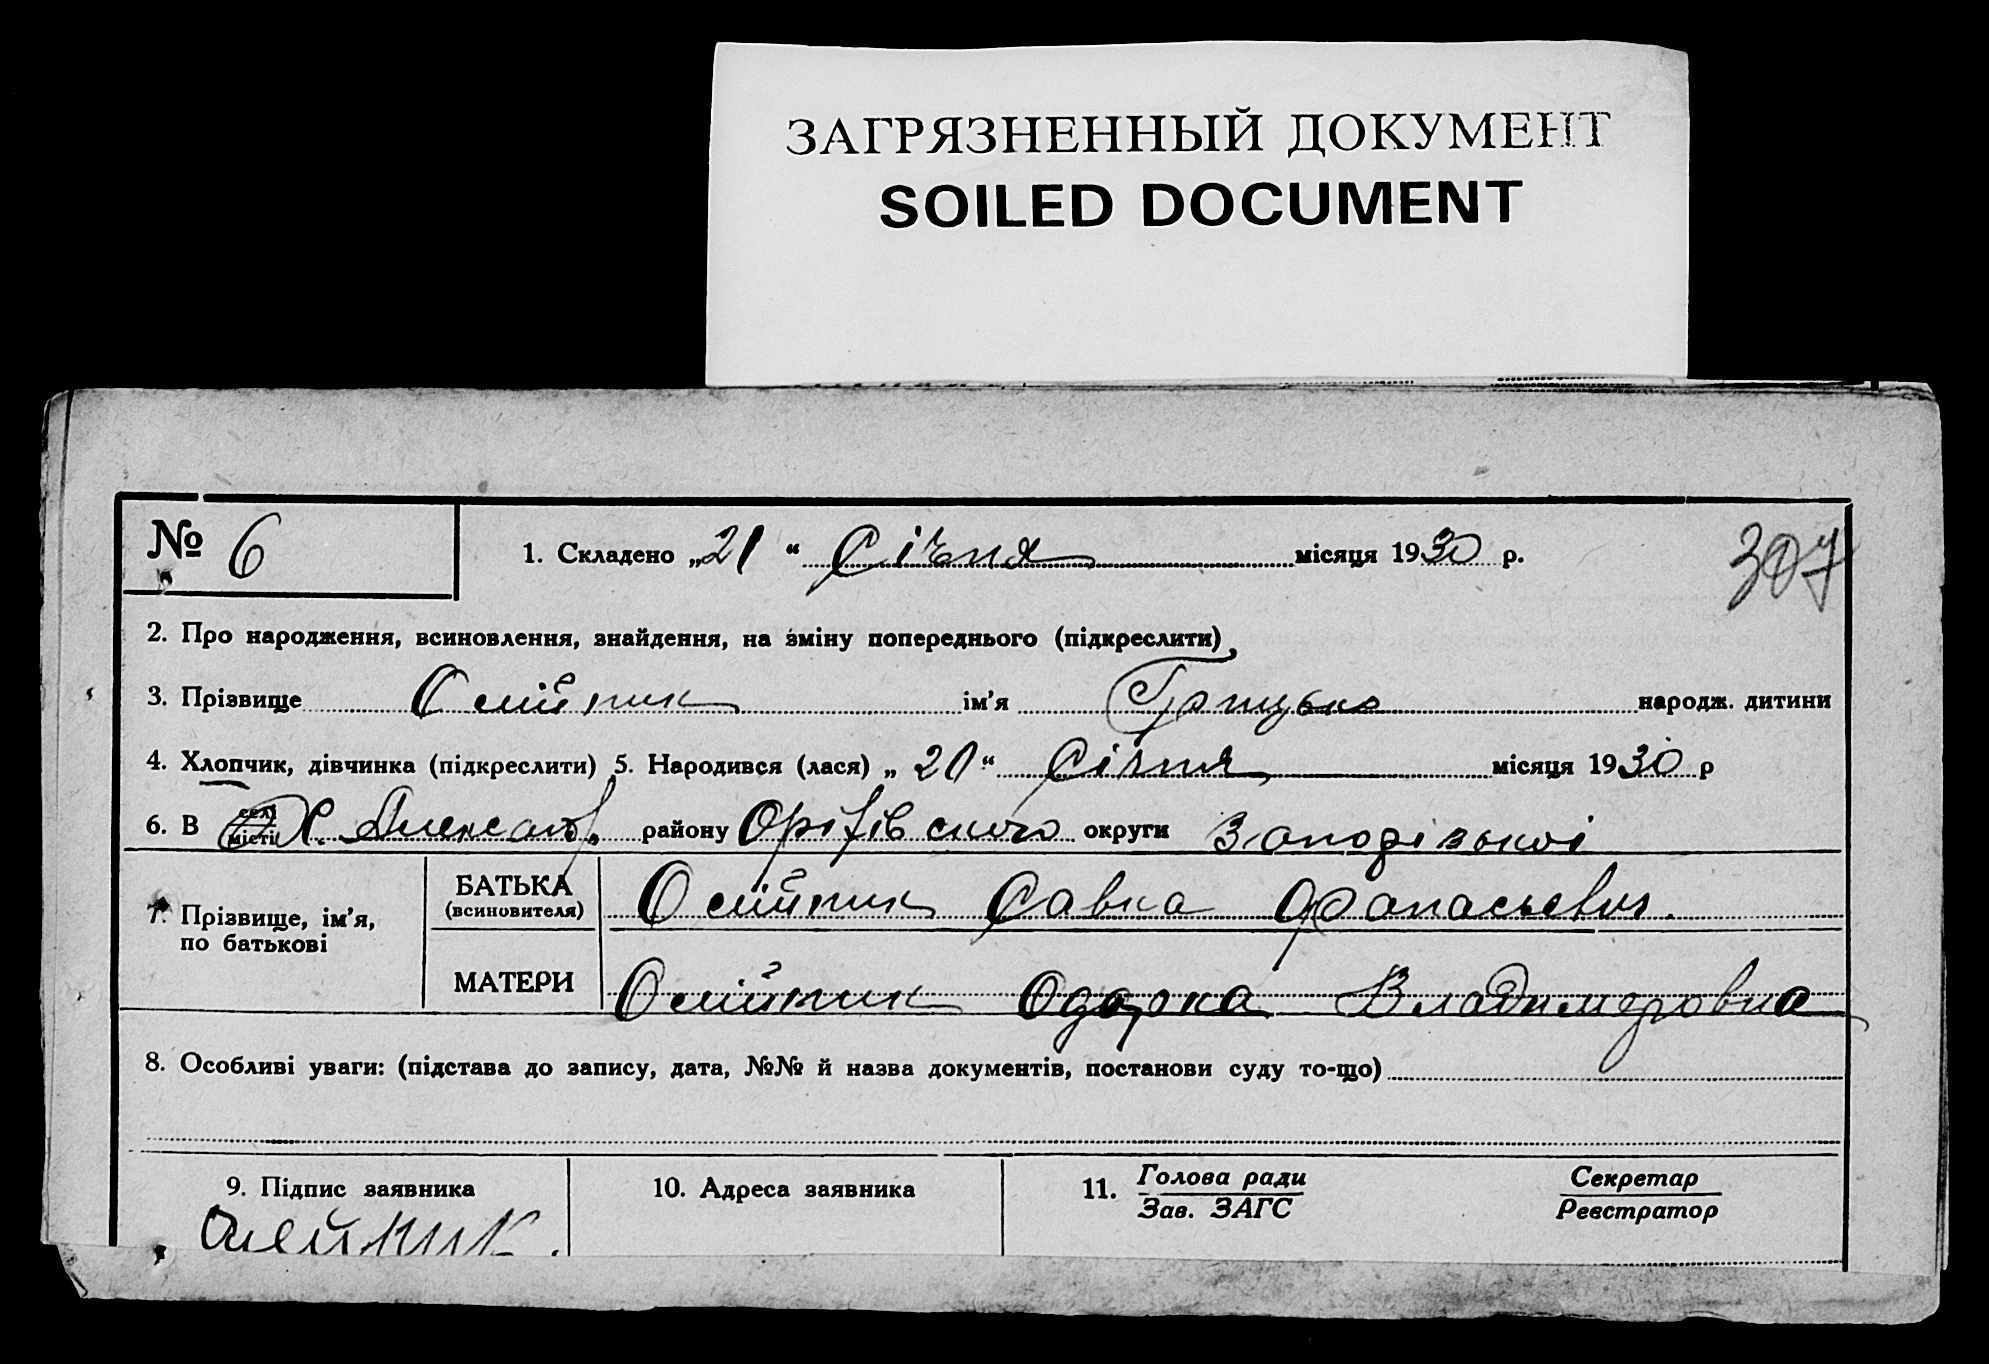 ЗАГРЯЗНЕННЫЙ ДОКУМЕНТ
SOILED DOCUMENT
№ 6
1. Складено „21“ Січня місяця 1930 р.
307
2. Про народження, всиновлення, знайдення, на зміну попереднього (підкреслити)
3. Прізвище Олійник ім'я Грицько народж. дитини
4. Хлопчик, дівчинка (підкреслити) 5. Народився (лася) „20“ Січня місяця 1930 р
6. В селі місті Х. Олександ. району Оріхівського округи Запорізької
7. Прізвище, ім'я, по батькові
БАТЬКА (всиновителя) Олійник Савка Афанасьевич.
МАТЕРИ Олійник Одарка Владимеровна
8. Особливі уваги: (підстава до запису, дата, №№ й назва документів, постанови суду то-що)
9. Підпис заявника
10. Адреса заявника
11. Голова ради
Зав. ЗАГС
Секретар
Реєстратор
Олейник.